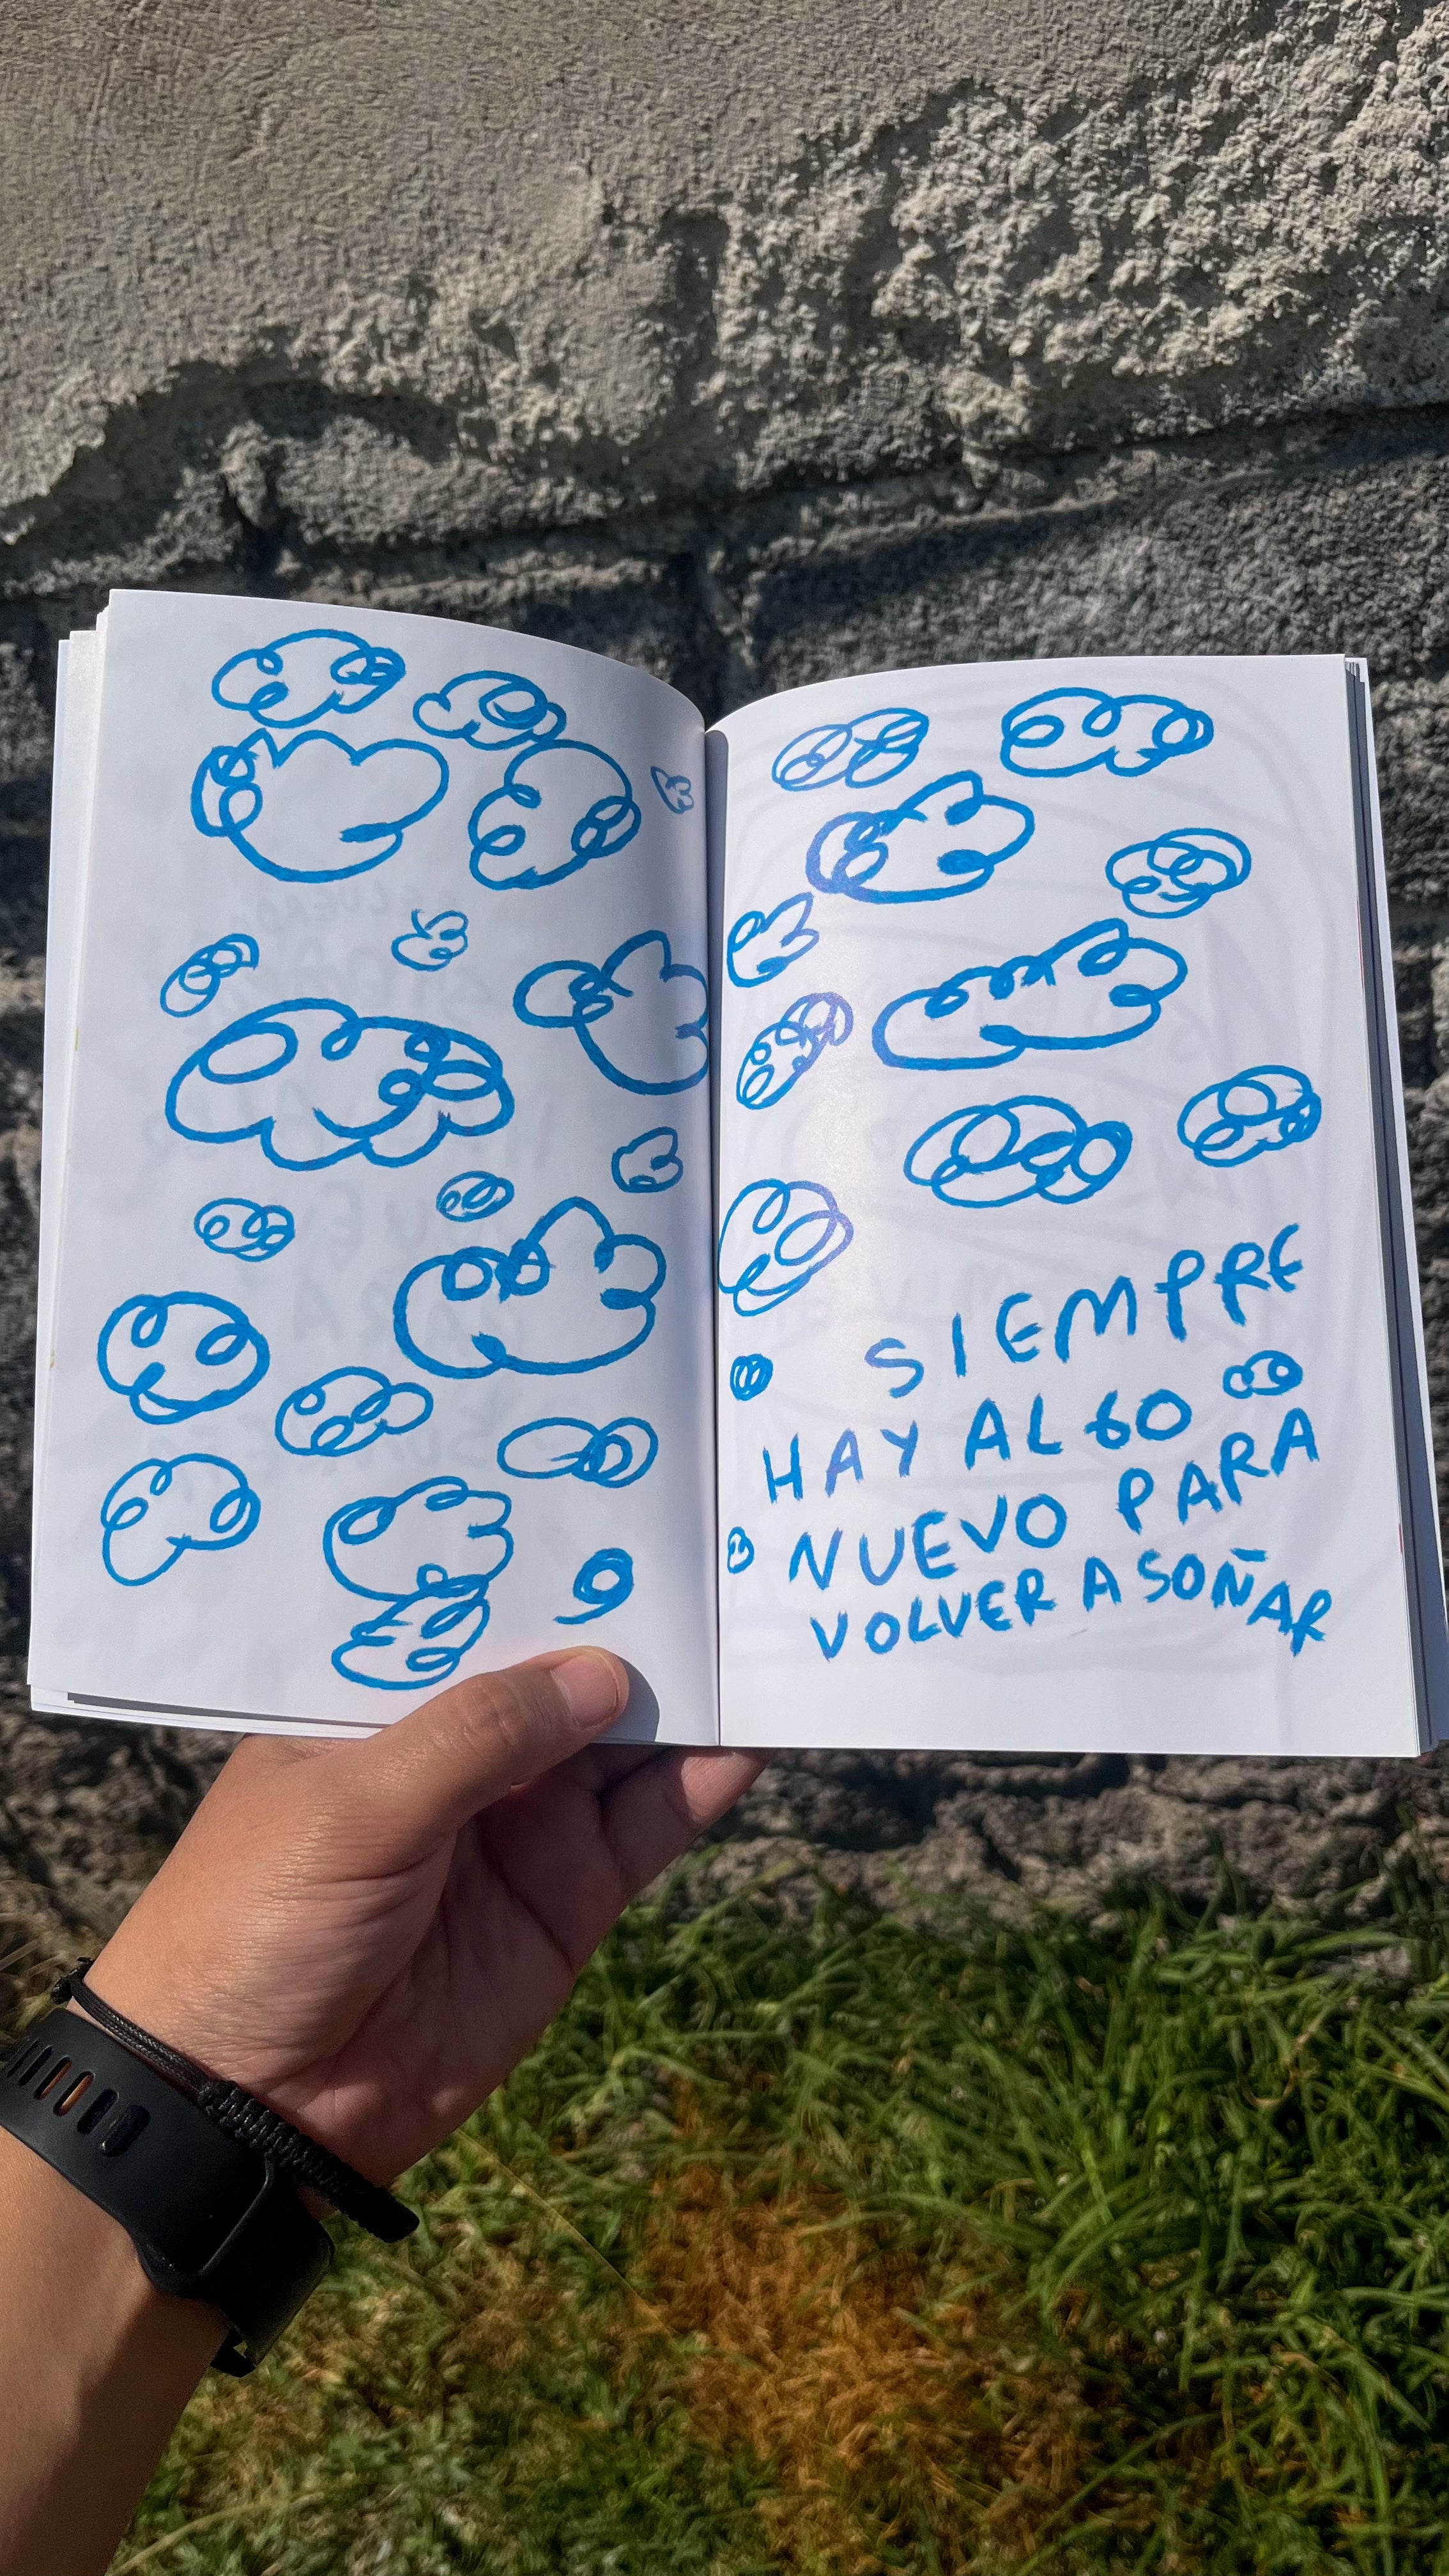 SIEMPRE
HAY ALGO
NUEVO PARA
VOLVER A SOÑAR